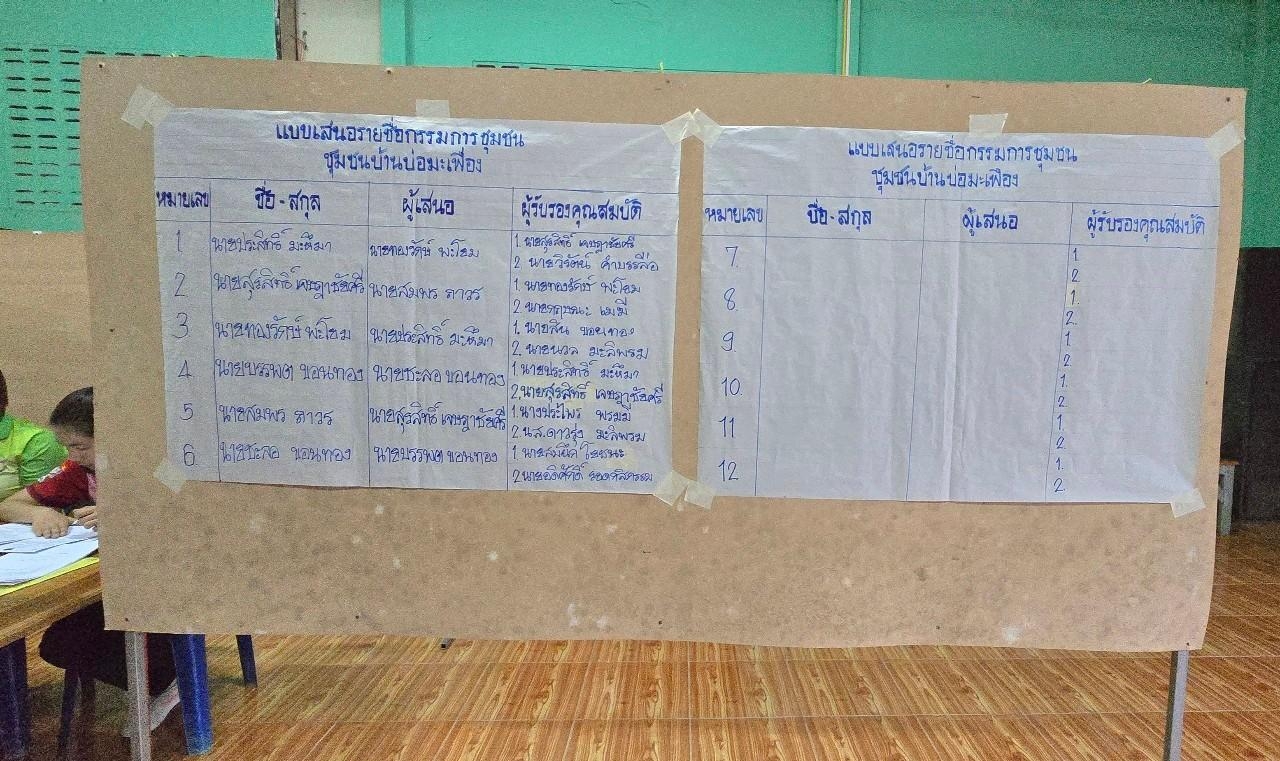 แบบเสนอรายชื่อกรรมการชุมชน
ชุมชนบ้านบ่อมะเฟือง
หมายเลข ชื่อ - สกุล ผู้เสนอ ผู้รับรองคุณสมบัติ
1 นายประสิทธิ์ มะหิมา นายทองรักษ์ พะโยม 1. นายสุรสิทธิ์ เจษฎาชัยศรี
2. นายวิรัตน์
2 นายสุรสิทธิ์ เจษฎาชัยศรี นายสมพร ถาวร 1. นายทองรักษ์ พะโยม
2. นายกฤษณะ
3 นายทองรักษ์ พะโยม นายประสิทธิ์ มะหิมา 1. นายสิน ขอนทอง
2. นายนวล มะลิพรม
4 นายบรรพต ขอนทอง นายชะลอ ขอนทอง 1. นายประสิทธิ์ มะหิมา
2. นายสุรสิทธิ์ เจษฎาชัยศรี
5 นายสมพร ถาวร นายสุรสิทธิ์ เจษฎาชัยศรี 1. นางประไพร
2. น.ส.ดาวรุ่ง มะลิพรม
6. นายชะลอ ขอนทอง นายบรรพต ขอนทอง 1. นายสมนึก
2.
แบบเสนอรายชื่อกรรมการชุมชน
ชุมชนบ้านบ่อมะเฟือง
หมายเลข ชื่อ - สกุล ผู้เสนอ ผู้รับรองคุณสมบัติ
7. 1.
2.
8. 1.
2.
9. 1.
2.
10 1.
2.
11 1.
2.
12 1.
2.